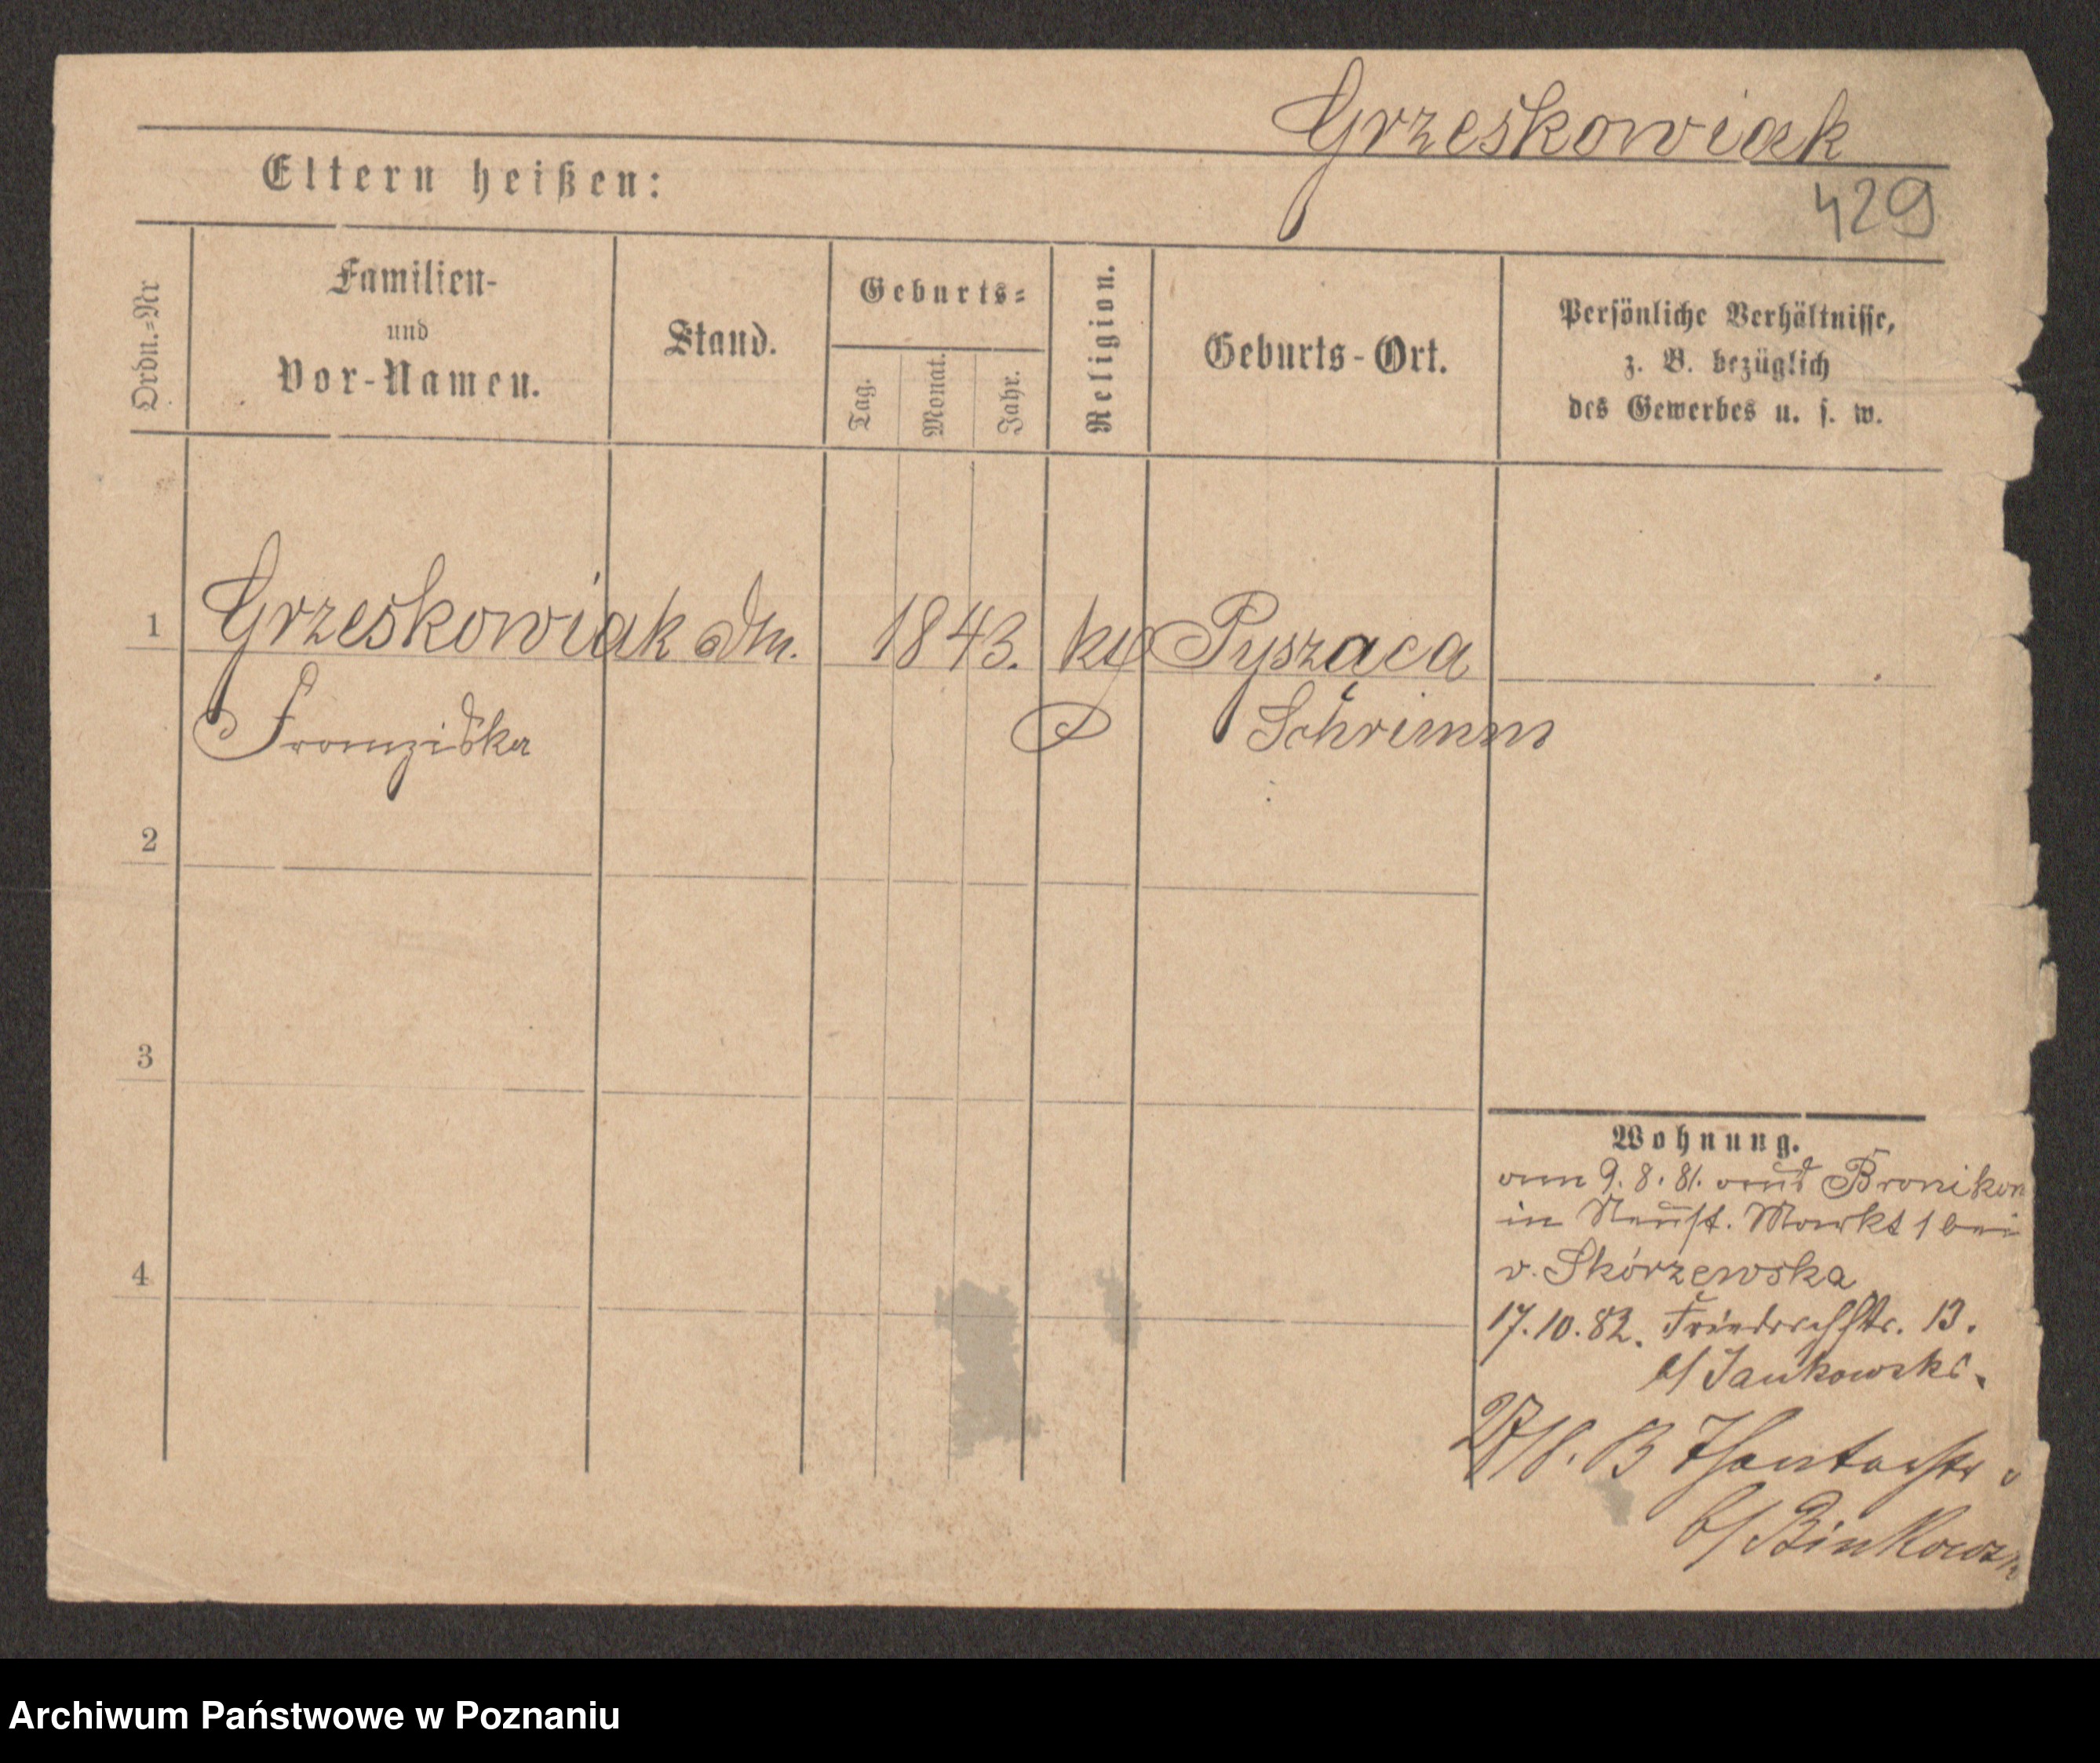 Grzeskowiak
429
Eltern heißen:
Ordn.=Nr
Familien-
und
Vor-Namen.
Stand.
Geburts=
Tag.
Monat.
Jahr.
Religion.
Geburts-Ort.
Persönliche Verhältnisse,
z. B. bezüglich
des Gewerbes u. s. w.
1
Grzeskowiak
1843.
Pyszaca
Franziska
Schrimm
2
3
4
Wohnung.
am 9. 8. 81. aus Bronikow
in Neust. Markt 1 bei
v. Skórzewska
17.10.82. Friedrichstr. 13.
b/ Jankowski.
b/